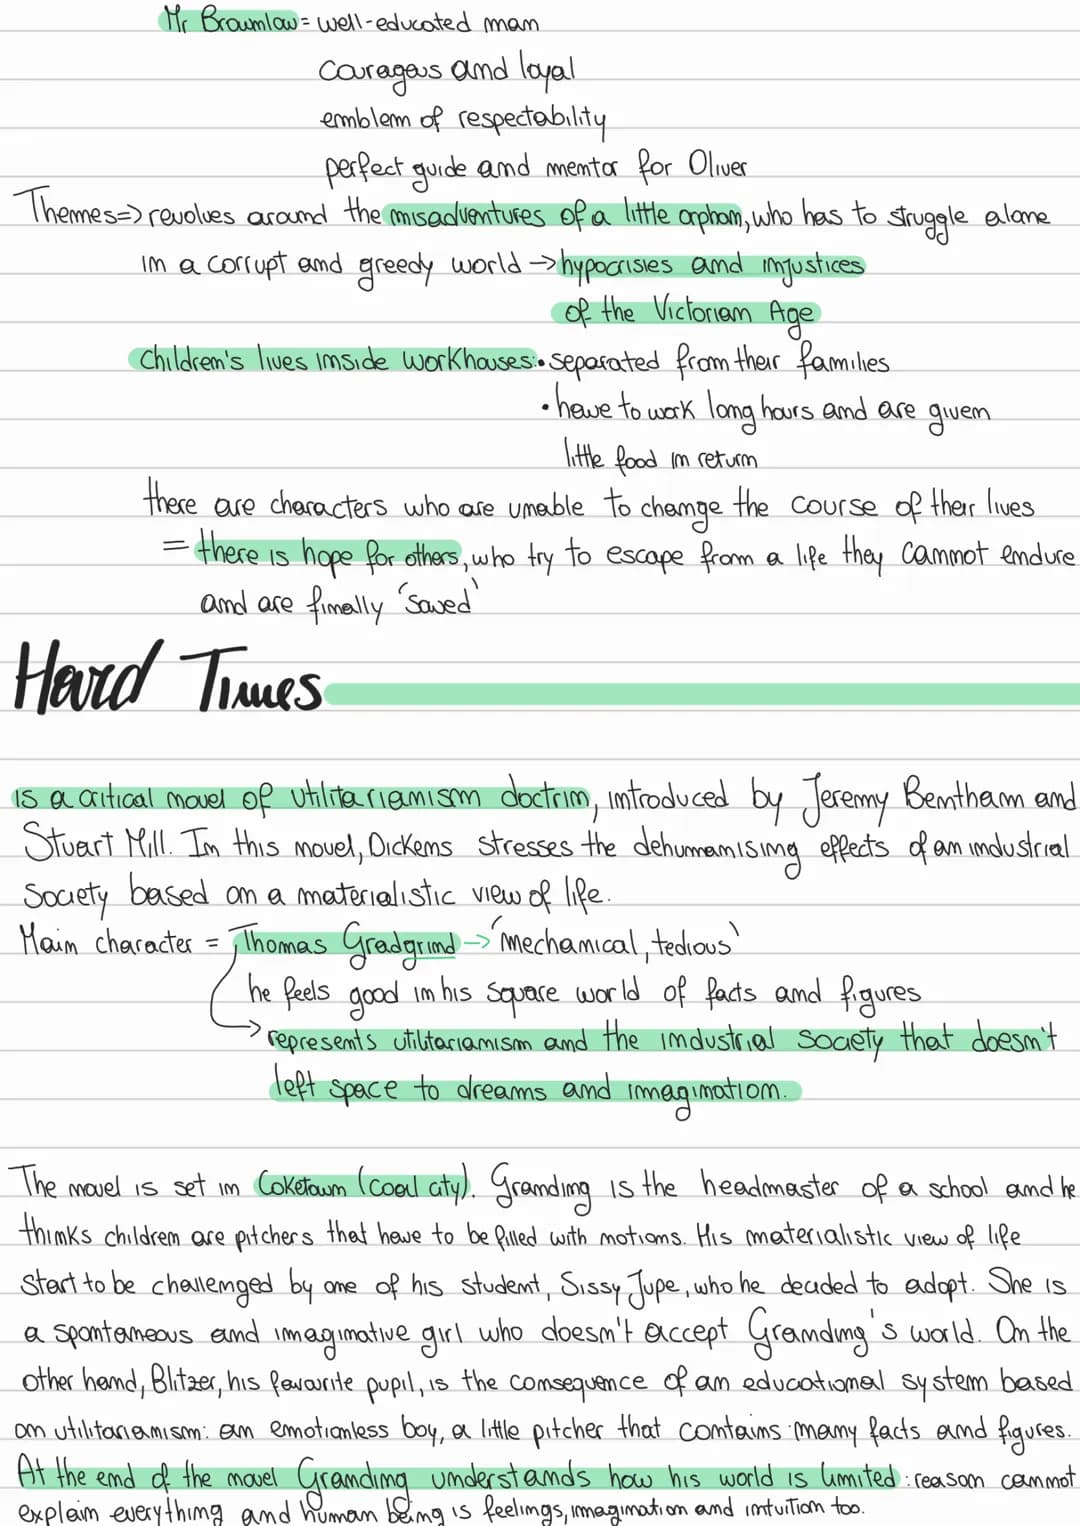 Mr Brownlow = well-educated man
courageus and loyal
emblem of respectability
perfect guide and mentor for Oliver
Themes=> revolves around the misadventures of a little orphan, who has to struggle alone
in a corrupt and greedy world → hypocrisies and injustices
of the Victorian Age
Children's lives inside workhouses: • separated from their families
• have to work long hours and are given
little food in return
there are characters who are unable to change the course of their lives
= there is hope for others, who try to escape from a life they cannot endure
and are finally 'saved'
Hard Times
is a critical novel of utilitarianism doctrin, introduced by Jeremy Bentham and
Stuart Mill. In this novel, Dickens stresses the dehumanising effects of an industrial
society based on a materialistic view of life.
Main character = Thomas Gradgrind → 'mechanical, tedious'
he feels good in his square world of facts and figures
→ represents utilitarianism and the industrial society that doesn't
left space to dreams and imagination.
The novel is set in Coketown (coal city). Granding is the headmaster of a school and he
thinks children are pitchers that have to be filled with notions. His materialistic view of life
start to be challenged by one of his student, Sissy Jupe, who he decided to adopt. She is
a spontaneous and imaginative girl who doesn't accept Granding's world. On the
other hand, Blitzer, his favourite pupil, is the consequence of an educational system based
on utilitarianism: an emotionless boy, a little pitcher that contains many facts and figures.
At the end of the novel Granding understands how his world is limited: reason cannot
explain everything and human being is feelings, imagination and intuition too.